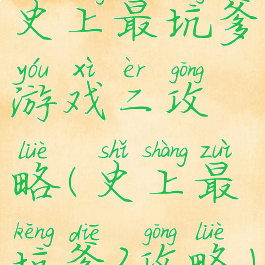 史上最坑爹
yóu xì èr gōng
游戏二攻
lüè shǐ shàng zuì
略(史上最
kēng diē gōng lüè
坑爹2攻略)